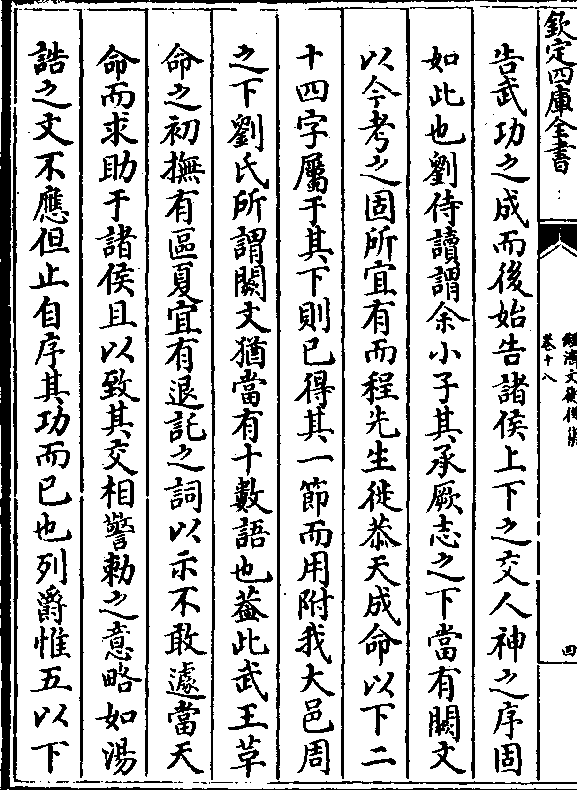 欽定四庫全書
經濟文衡後集
卷十八
四
告武功之成而後始告諸侯上下之交人神之序固
如此也劉侍讀謂余小子其承厥志之下當有闕文
以今考之固所宜有而程先生徙恭天成命以下二
十四字屬于其下則已得其一節而用附我大邑周
之下劉氏所謂闕文猶當有十數語也葢此武王草
命之初撫有區夏宜有退託之詞以示不敢遽當天
命而求助于諸侯且以致其交相警勅之意略如湯
誥之文不應但止自序其功而已也列爵惟五以下